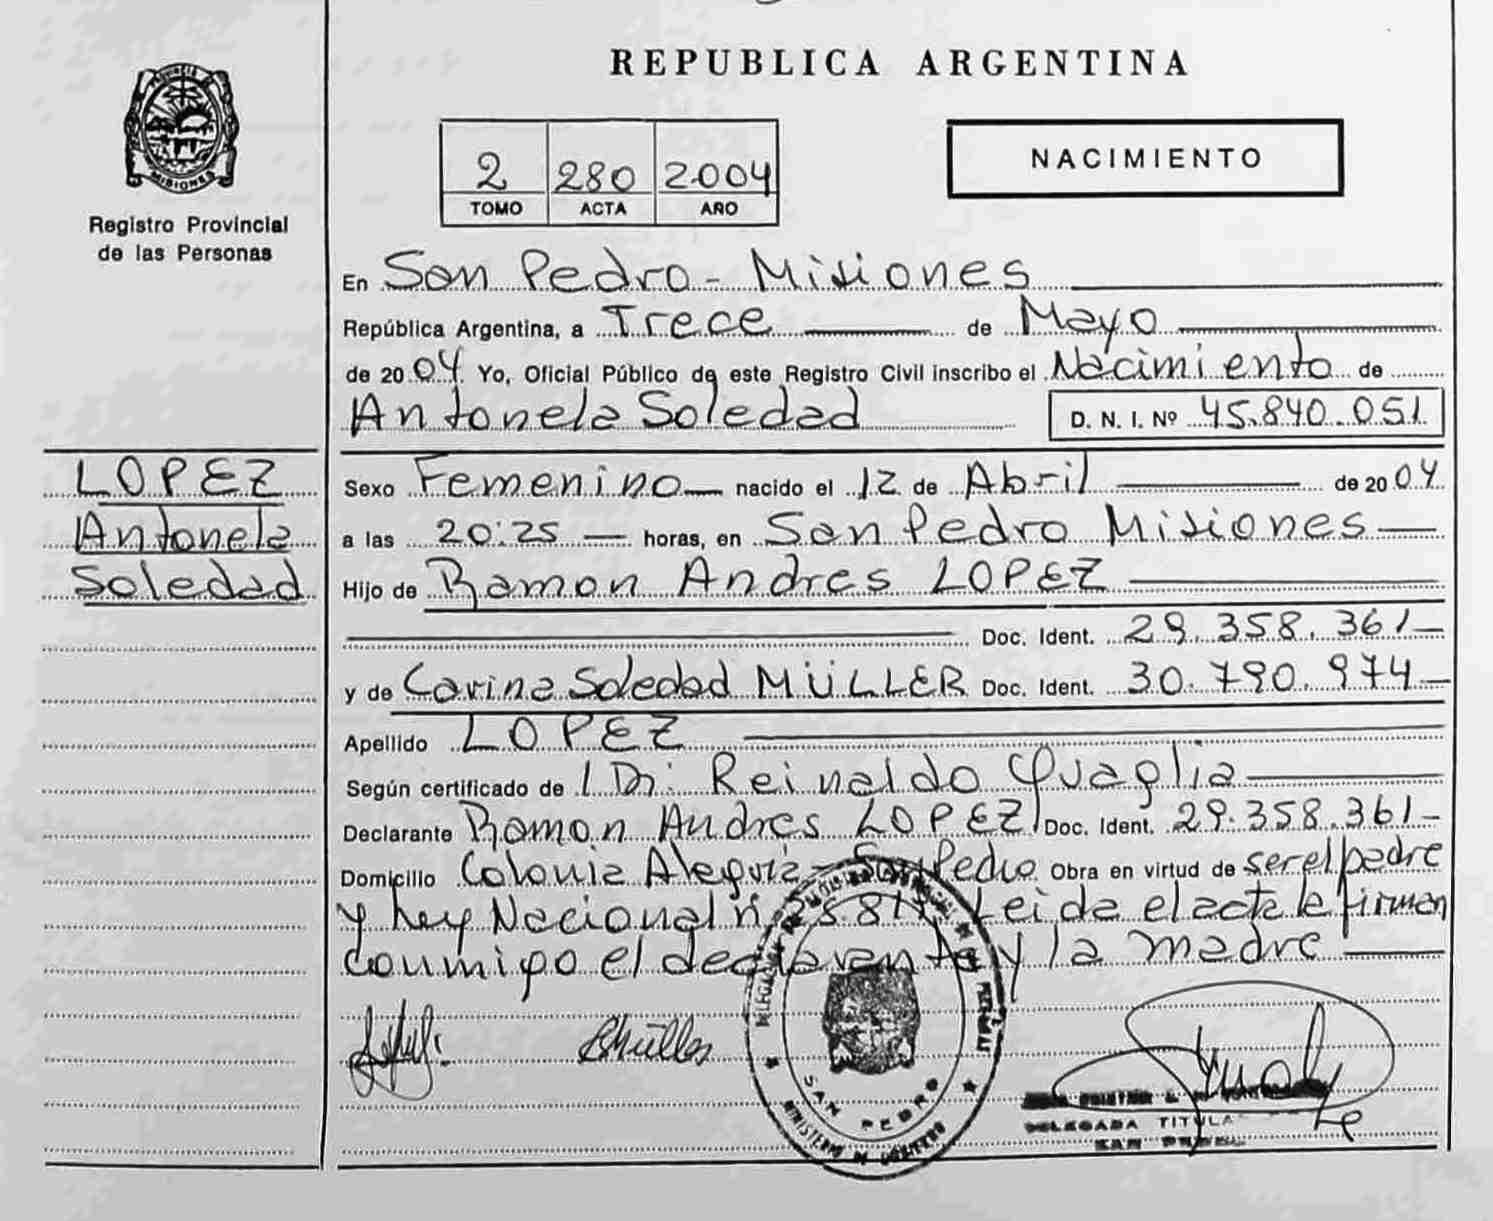 REPUBLICA ARGENTINA
MISIONES
Registro Provincial
de las Personas
2 280 2004
TOMO ACTA AÑO
NACIMIENTO
En San Pedro - Misiones
República Argentina, a Trece de Mayo
de 2004 Yo, Oficial Público de este Registro Civil inscribo el Nacimiento de
Antonela Soledad D. N. I. Nº 45.840.051
LOPEZ
Antonela
Soledad
Sexo Femenino nacido el 12 de Abril de 2004
a las 20:25 horas, en San Pedro Misiones
Hijo de Ramon Andres LOPEZ
Doc. Ident. 29.358.361
y de Carina Soledad MÜLLER Doc. Ident. 30.790.974
Apellido LOPEZ
Según certificado de l Dr. Reinaldo Quaglia
Declarante Ramon Andres LOPEZ Doc. Ident. 29.358.361
Domicilio Colonia Alegria - San Pedro Obra en virtud de ser el padre
y Ley Nacional n Leida el acta la firman
conmigo el declarante y la madre
SAN PEDRO
DELEGADA TITULAR
SAN PEDRO